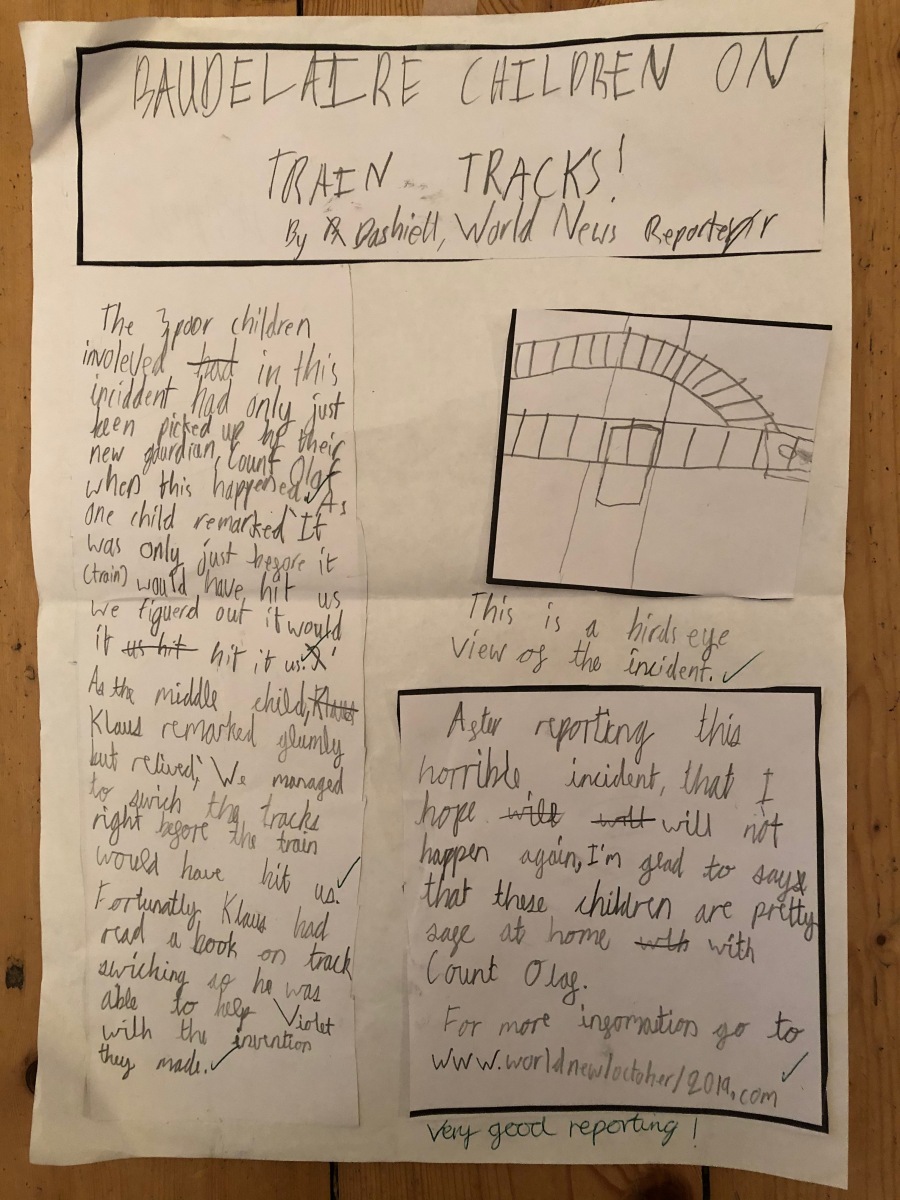 BAUDELAIRE CHILDREN ON
TRAIN TRACKS!
By Dashiell, World News Reporter
The 3 poor children
involeved had in this
inciddent had only just
been picked up by their
new gaurdian, Count Olaf
when this happened. As
one child remarked 'It
was only just before it
(train) would have hit us
we figuerd out it would
it us hit hit it us.'
As the middle child, Klaus
Klaus remarked glumly
but relived, 'We managed
to swich the tracks
right before the train
would have hit us.
Fortunatly Klaus had
read a book on track
swiching so he was
able to help Violet
with the invention
they made.
This is a birds eye
view of the incident.
After reporting this
horrible, incident, that I
hope will will will not
happen again, I'm glad to say
that these children are pretty
safe at home with with
Count Olaf.
For more infomation go to
www.worldnew/october/2019.com
Very good reporting!